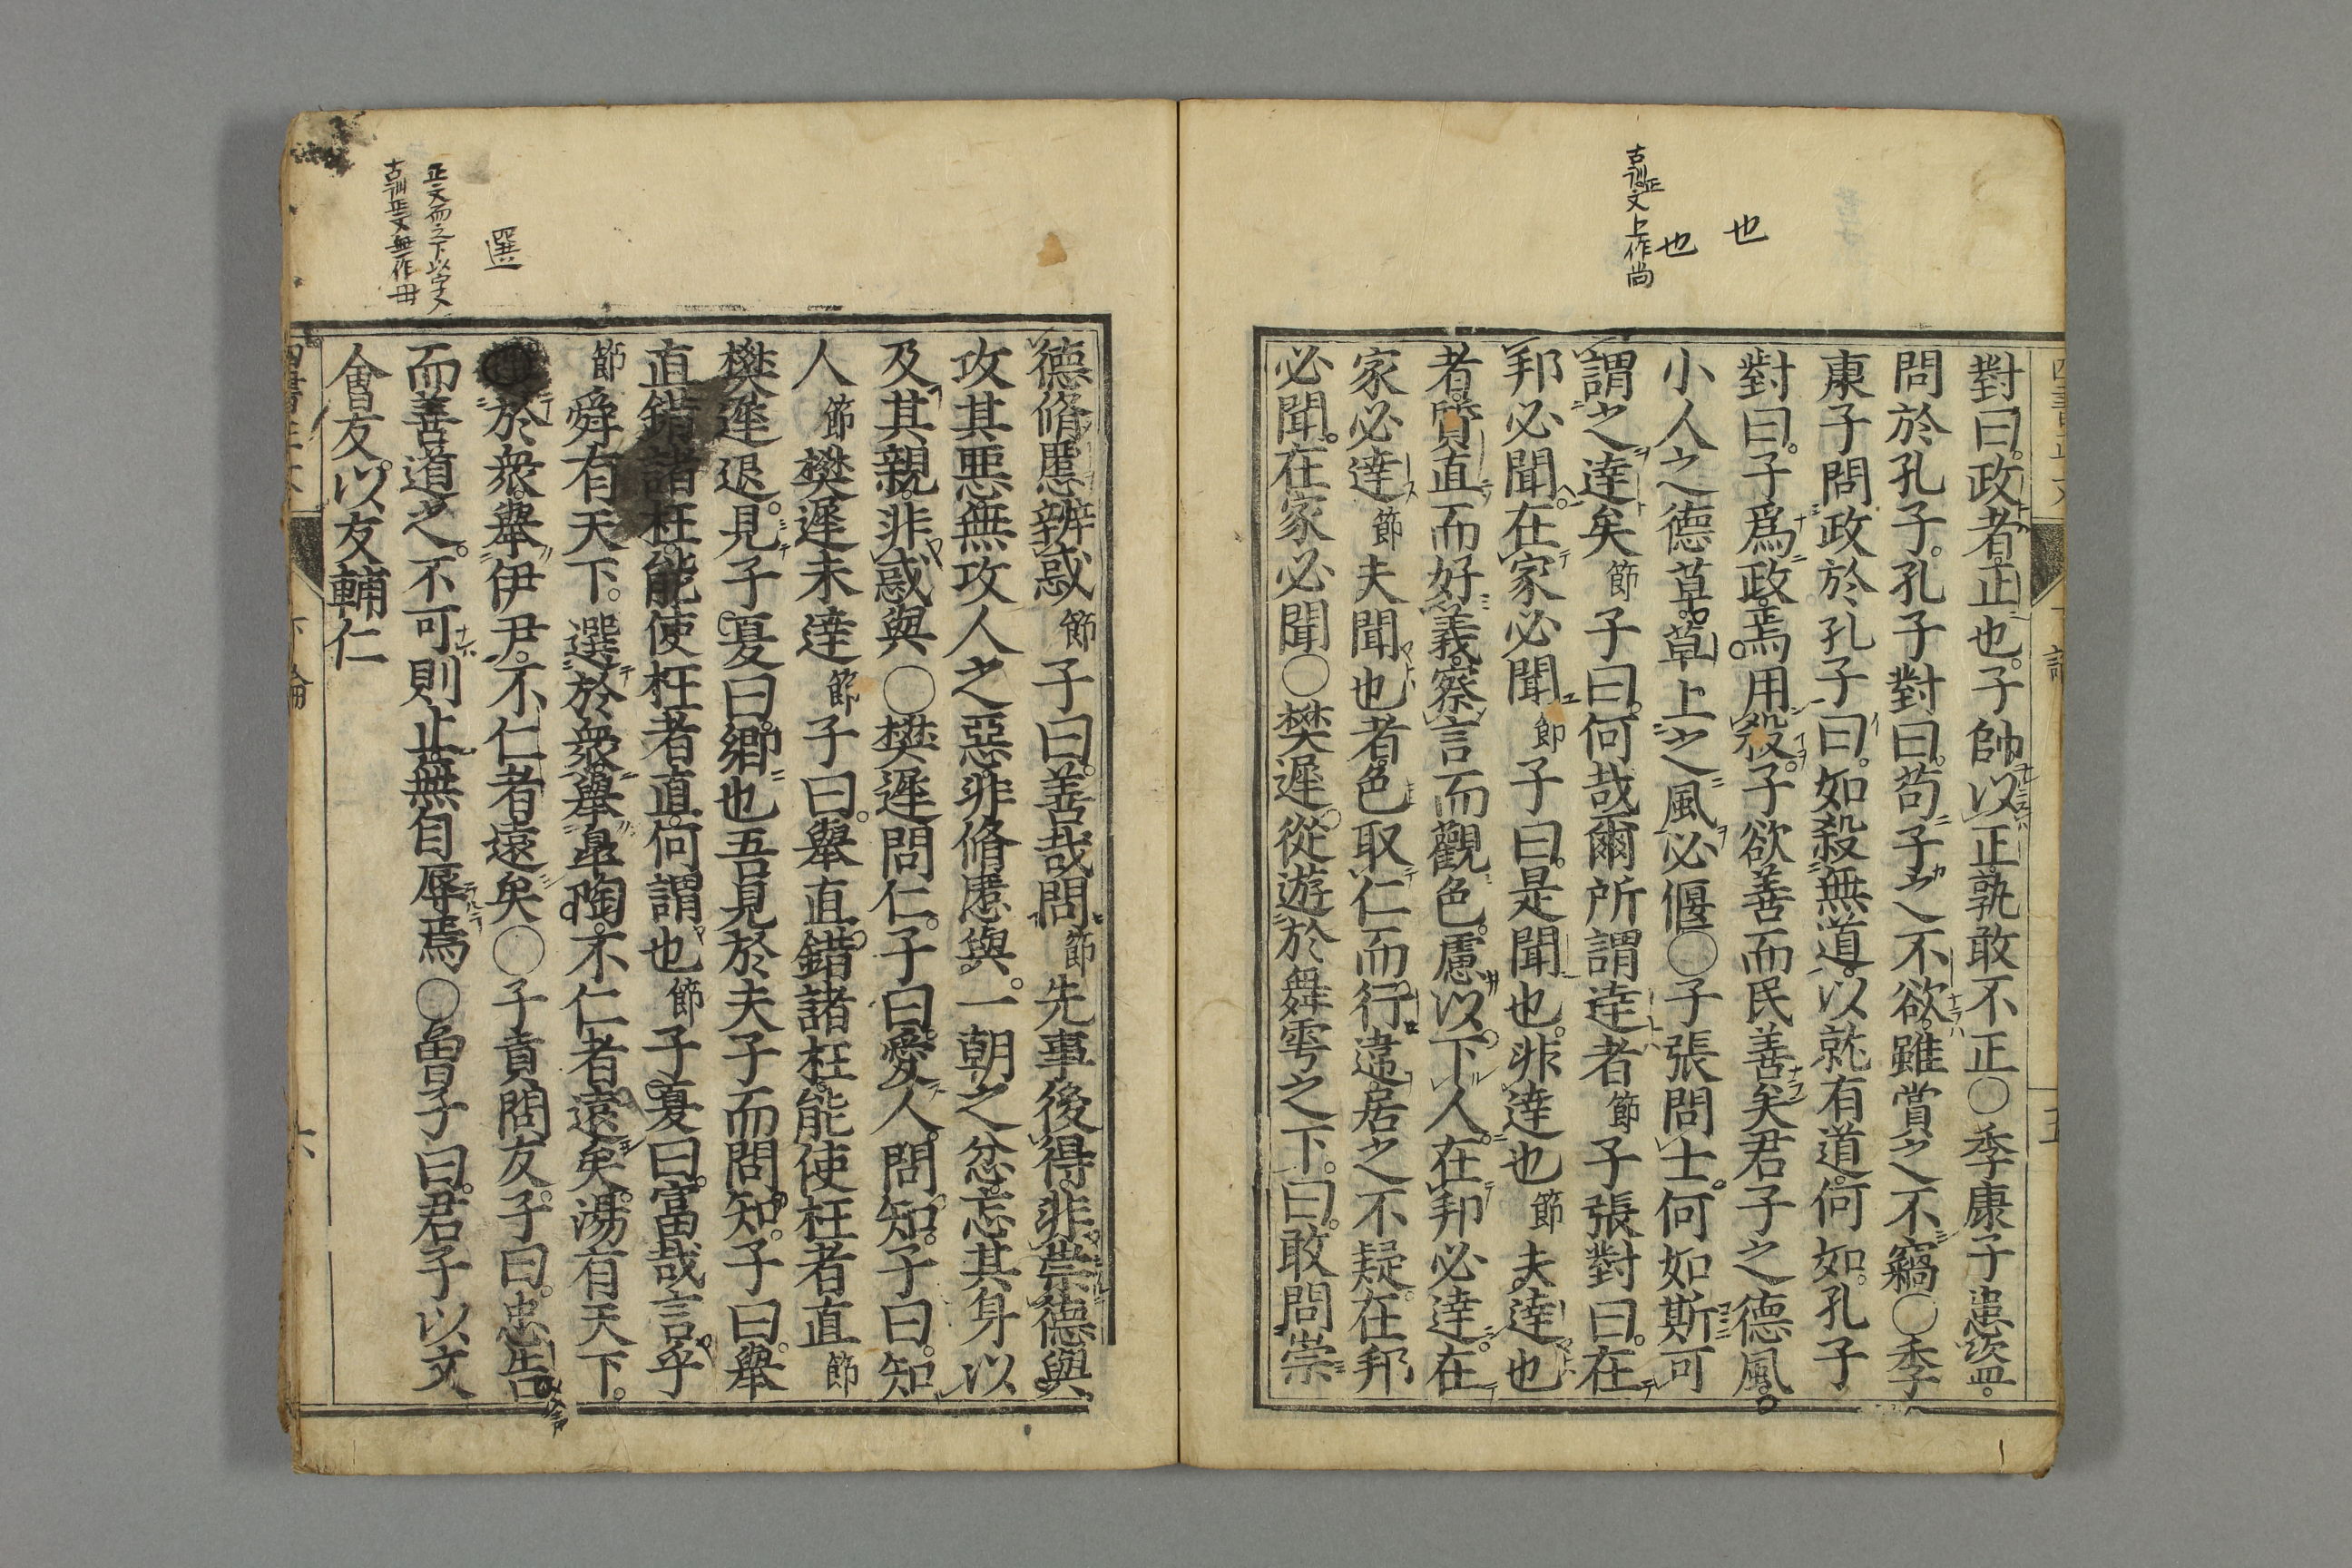 也
也
古訓正文上作尚
對曰。政者正也。子帥以正。孰敢不正〇季康子患盗。
問於孔子。孔子對曰。苟子之不欲。雖賞之不竊〇季
康子問政於孔子曰。如殺無道。以就有道。何如。孔子
對曰。子爲政。焉用殺。子欲善而民善矣君子之德風。
小人之德草。草上之風必偃〇子張問士。何如斯可
謂之達矣節子曰。何哉爾所謂達者節子張對曰。在
邦必聞。在家必聞節子曰。是聞也。非達也節夫達也
者。質直而好義。察言而觀色。慮以下人。在邦必達。在
家必達節夫聞也者。色取仁而行違。居之不疑。在邦
必聞。在家必聞〇樊遲。從遊於舞雩之下。曰。敢問崇
選
正文而之下以字又
古訓正文無作毋
德脩慝辨惑節子曰。善哉問節先事後得。非崇德與。
攻其惡無攻人之惡非脩慝與。一朝之忿。忘其身以
及其親。非惑與〇樊遲問仁。子曰。愛人。問知。子曰。知
人節樊遲未達節子曰。舉直。錯諸枉。能使枉者直節
樊遲退。見子夏曰。鄉也吾見於夫子而問知。子曰。舉
直錯諸枉。能使枉者直。何謂也節子夏曰。富哉言乎
節舜有天下。選於衆。舉皐陶。不仁者遠矣。湯有天下。
於衆。舉伊尹。不仁者遠矣〇子貢問友。子曰。忠告
而善道之。不可則止。無自辱焉〇曾子曰。君子以文
會友。以友輔仁